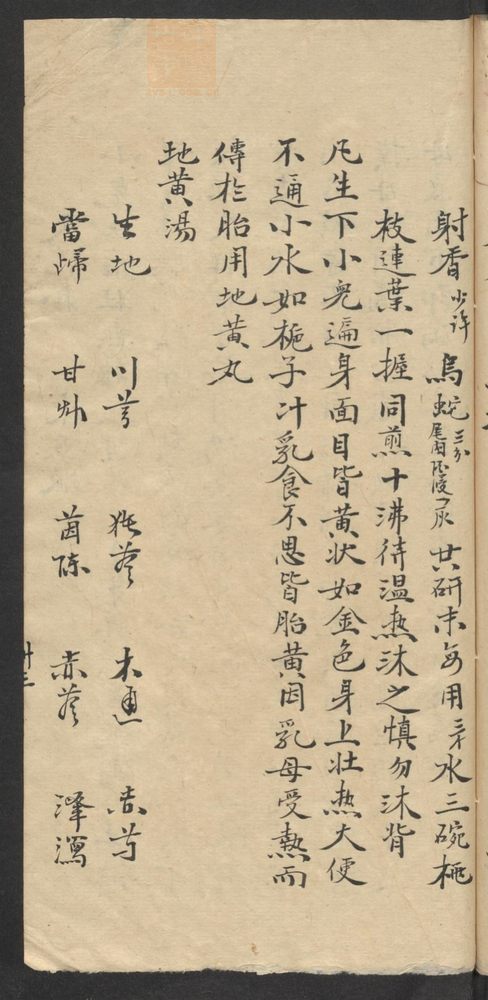 射香少許 烏蛇三分 共研末每用三水三碗桃
枝連葉一握同煎十沸待溫熱沐之慎勿沐背
凡生下小兒遍身面目皆黄狀如金色身上壯熱大便
不通小水如梔子汁乳食不思皆胎黄因乳母受熱而
傳於胎用地黄丸
地黄湯
生地 川芎 猪苓 木通 赤芍
當歸 甘艸 茵陳 赤苓 澤瀉
廿三